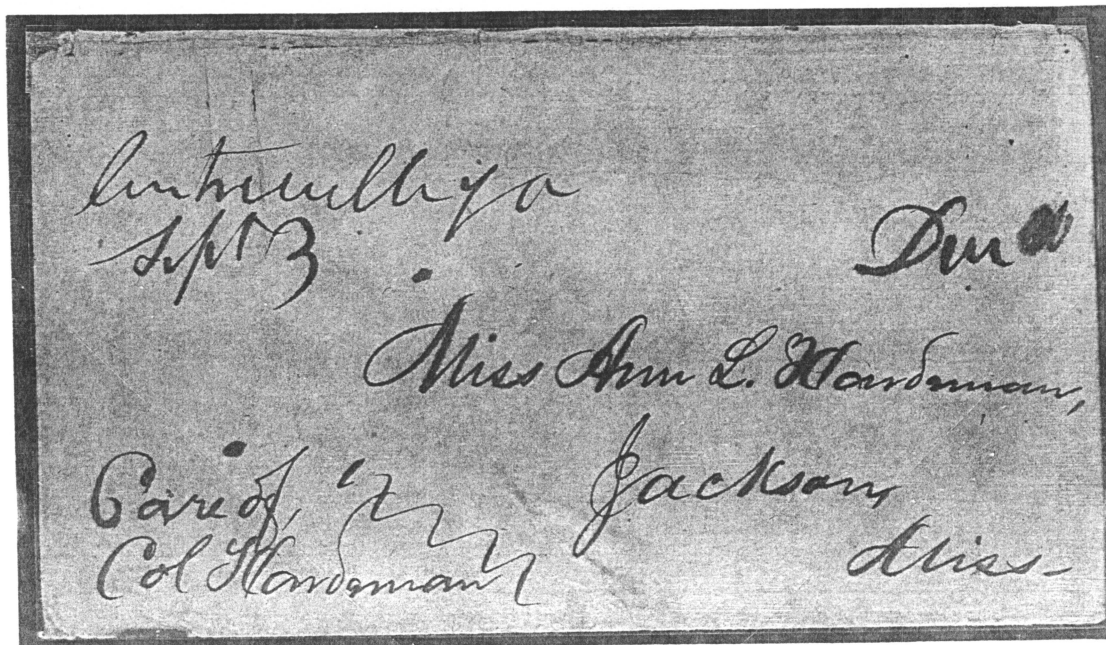 Centreville Va
Sept 3
Due
Miss Ann L. Hardeman,
Jackson,
Miss-
Care of,
Col Hardeman